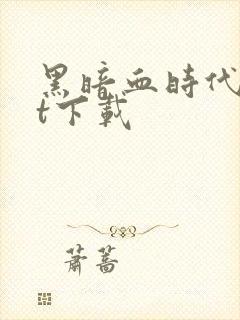 黑暗血時代
t下載
蕭蒿